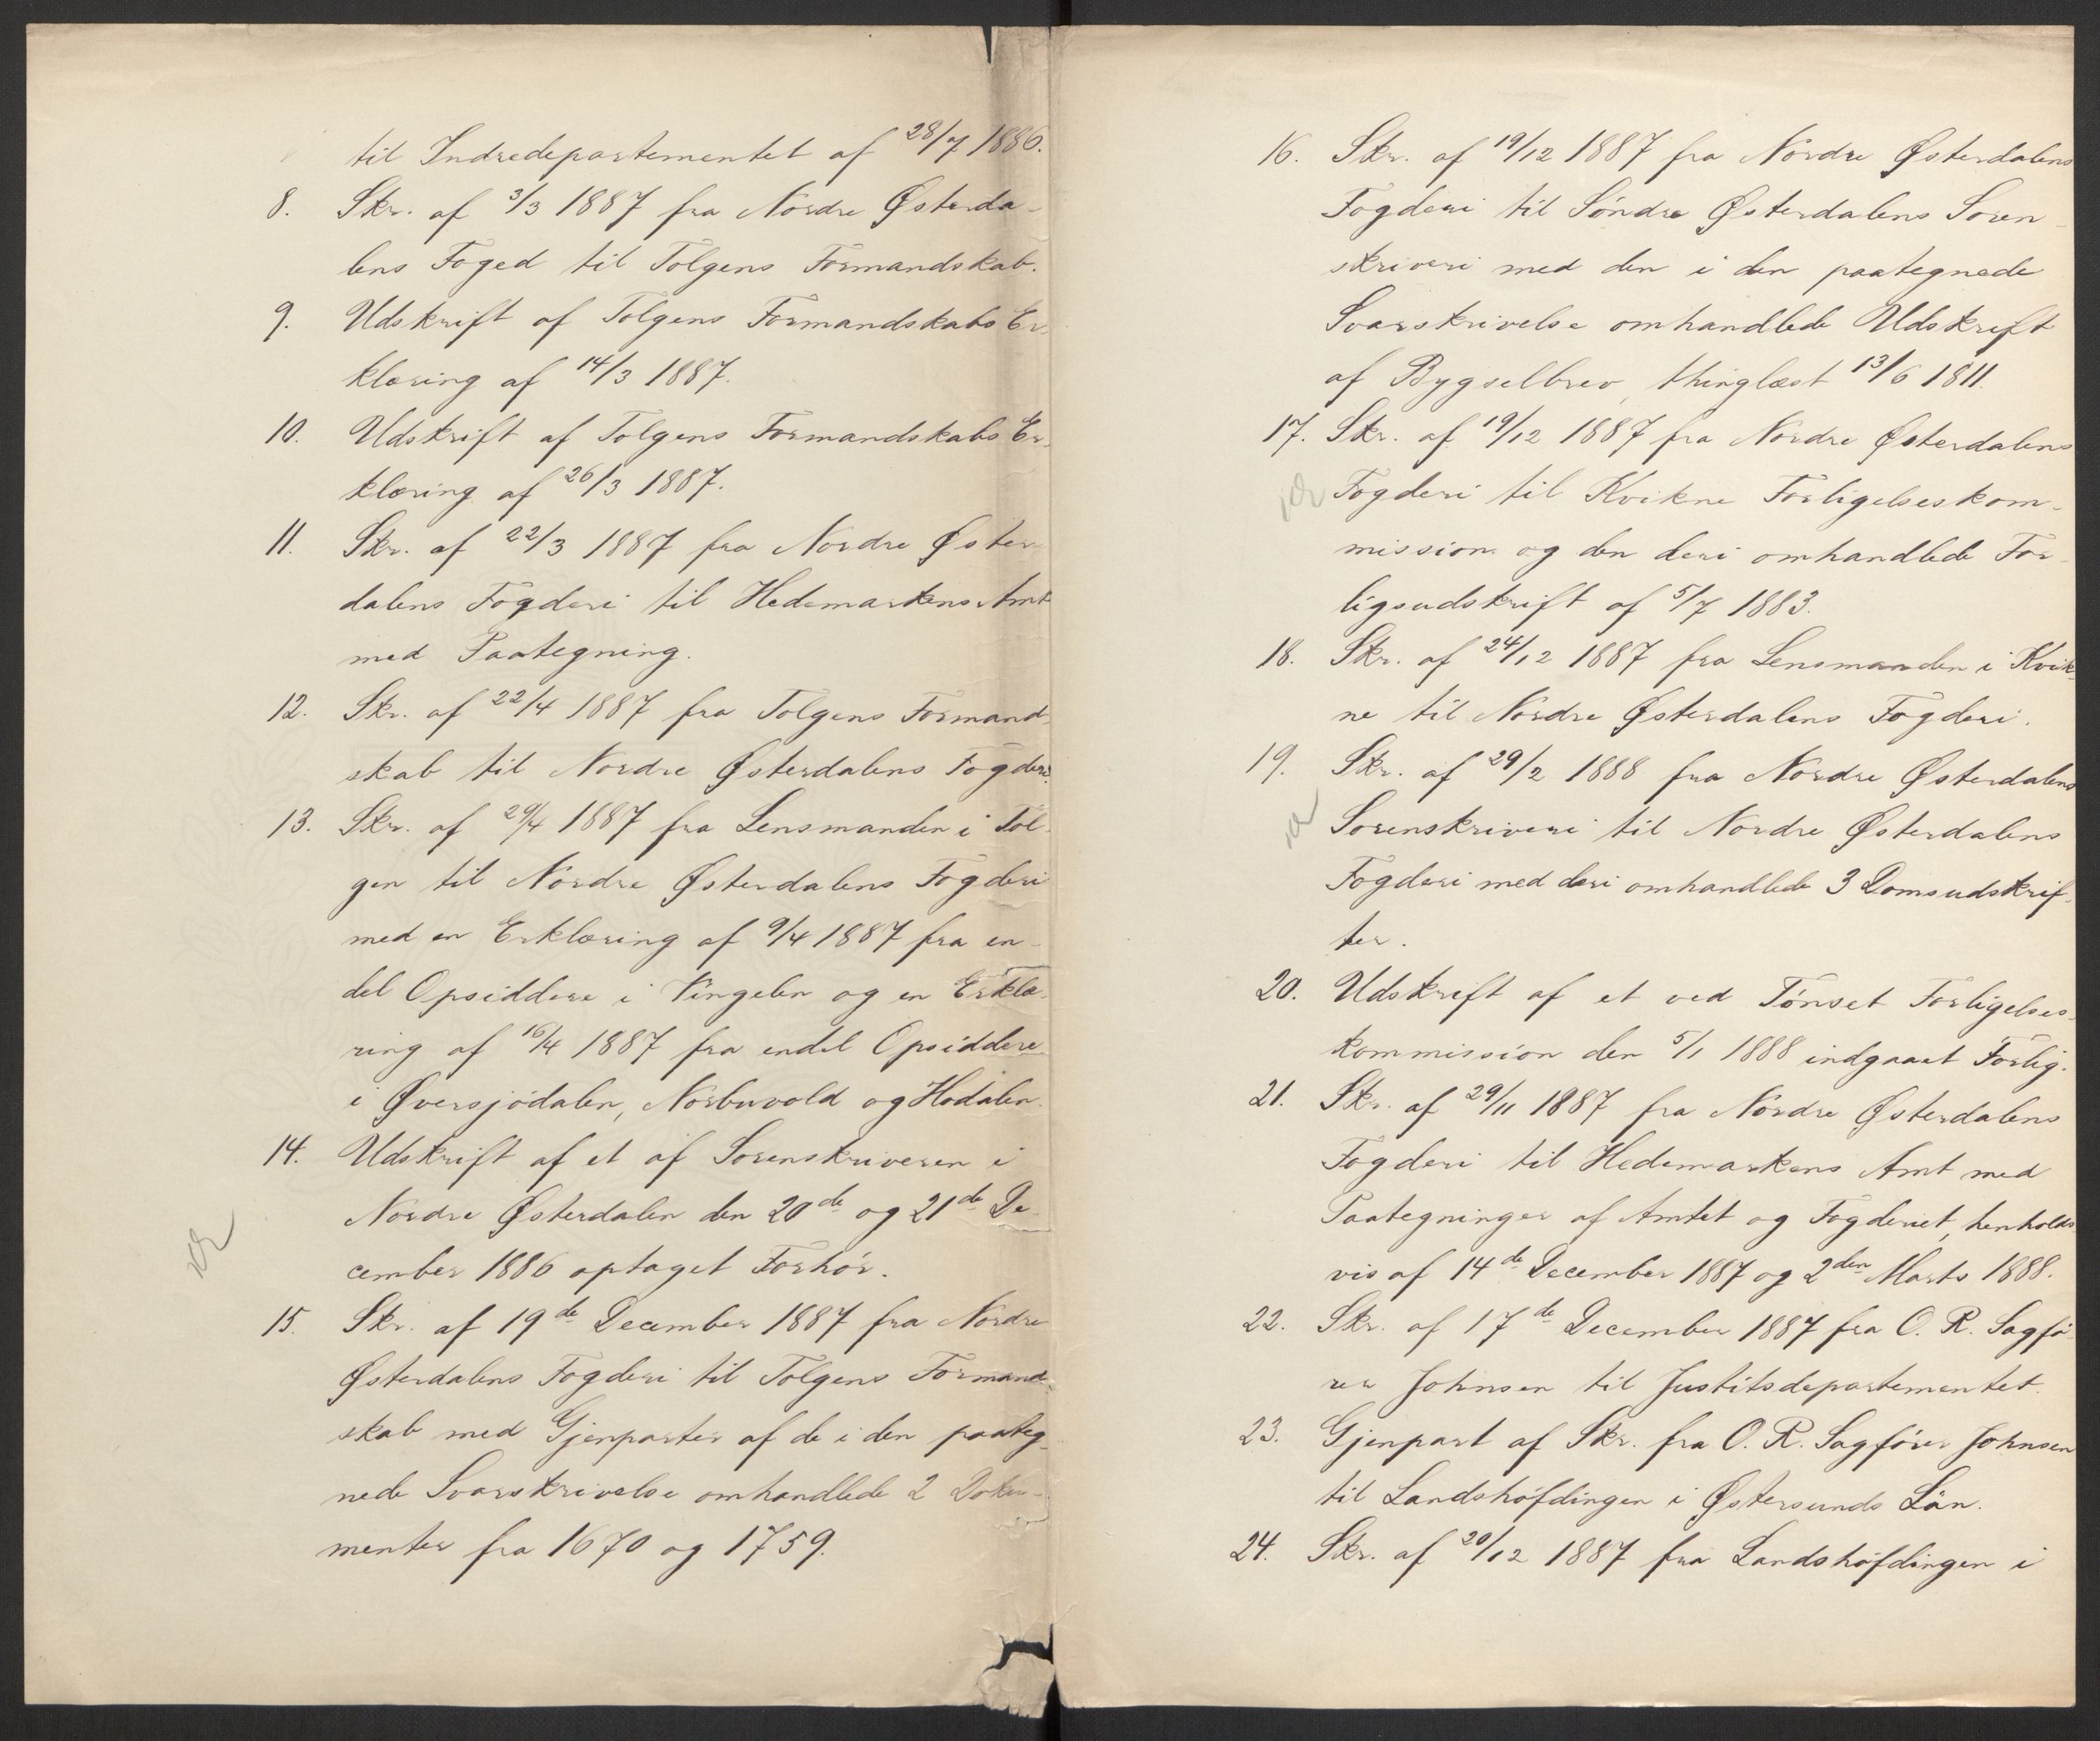 til Indredepartementet af 28/7 1886.
8. Skr. af 3/3 1887 fra Nordre Østerda-
lens Foged til Tolgens Formandskab.
9. Udskrift af Tolgens Formandskabs Er-
klæring af 14/3 1887.
10. Udskrift af Tolgens Formandskabs Er-
klæring af 26/3 1887.
11. Skr. af 22/3 1887 fra Nordre Øster-
dalens Fogderi til Hedemarkens Amt
med Paategning.
12. Skr. af 22/4 1887 fra Tolgens Formand-
skab til Nordre Østerdalens Fogderi.
13. Skr. af 29/4 1887 fra Lensmanden i Tol-
gen til Nordre Østerdalens Fogderi
med en Erklæring af 9/4 1887 fra en-
del Opsiddere i Vingelen og en Erklæ-
ring af 16/4 1887 fra endel Opsiddere
i Øversjødalen, Norbuvold og Hodalen.
14. Udskrift af et af Sorenskriveren i
Nordre Østerdalen den 20de og 21de De-
cember 1886 optaget Forhør.
15. Skr. af 19de December 1887 fra Nordre
Østerdalens Fogderi til Tolgens Formand-
skab med Gjenparter af de i den paateg-
nede Svarskrivelse omhandlede 2 Doku-
menter fra 1670 og 1759.
16. Skr. af 19/12 1887 fra Nordre Østerdalens
Fogderi til Søndre Østerdalens Soren-
skriveri med den i den paategnede
Svarskrivelse omhandlede Udskrift
af Bygselbrev, thinglæst 13/6 1811.
17. Skr. af 19/12 1887 fra Nordre Østerdalens
Fogderi til Kvikne Forligelseskom-
mission og den deri omhandlede For-
ligsudskrift af 5/7 1883.
18. Skr. af 24/12 1887 fra Lensmanden i Kvik-
ne til Nordre Østerdalens Fogderi.
19. Skr. af 29/2 1888 fra Nordre Østerdalens
Sorenskriveri til Nordre Østerdalens
Fogderi med deri omhandlede 3 Domsudskrif-
ter.
20. Udskrift af et ved Tönset Forligelses-
kommission den 5/1 1888 indgaaet Forlig.
21. Skr. af 29/11 1887 fra Nordre Østerdalens
Fogderi til Hedemarkens Amt med
Paategninger af Amtet og Fogderiet, henholds-
vis af 14de December 1887 og 2den Marts 1888.
22. Skr. af 17de December 1887 fra O. R. Sagfø-
rer Johnsen til Justitsdepartementet.
23. Gjenpart af Skr. fra O. R. Sagfører Johnsen
til Landshöfdingen i Østersunds Län.
24. Skr. af 20/12 1887 fra Landshöfdingen i